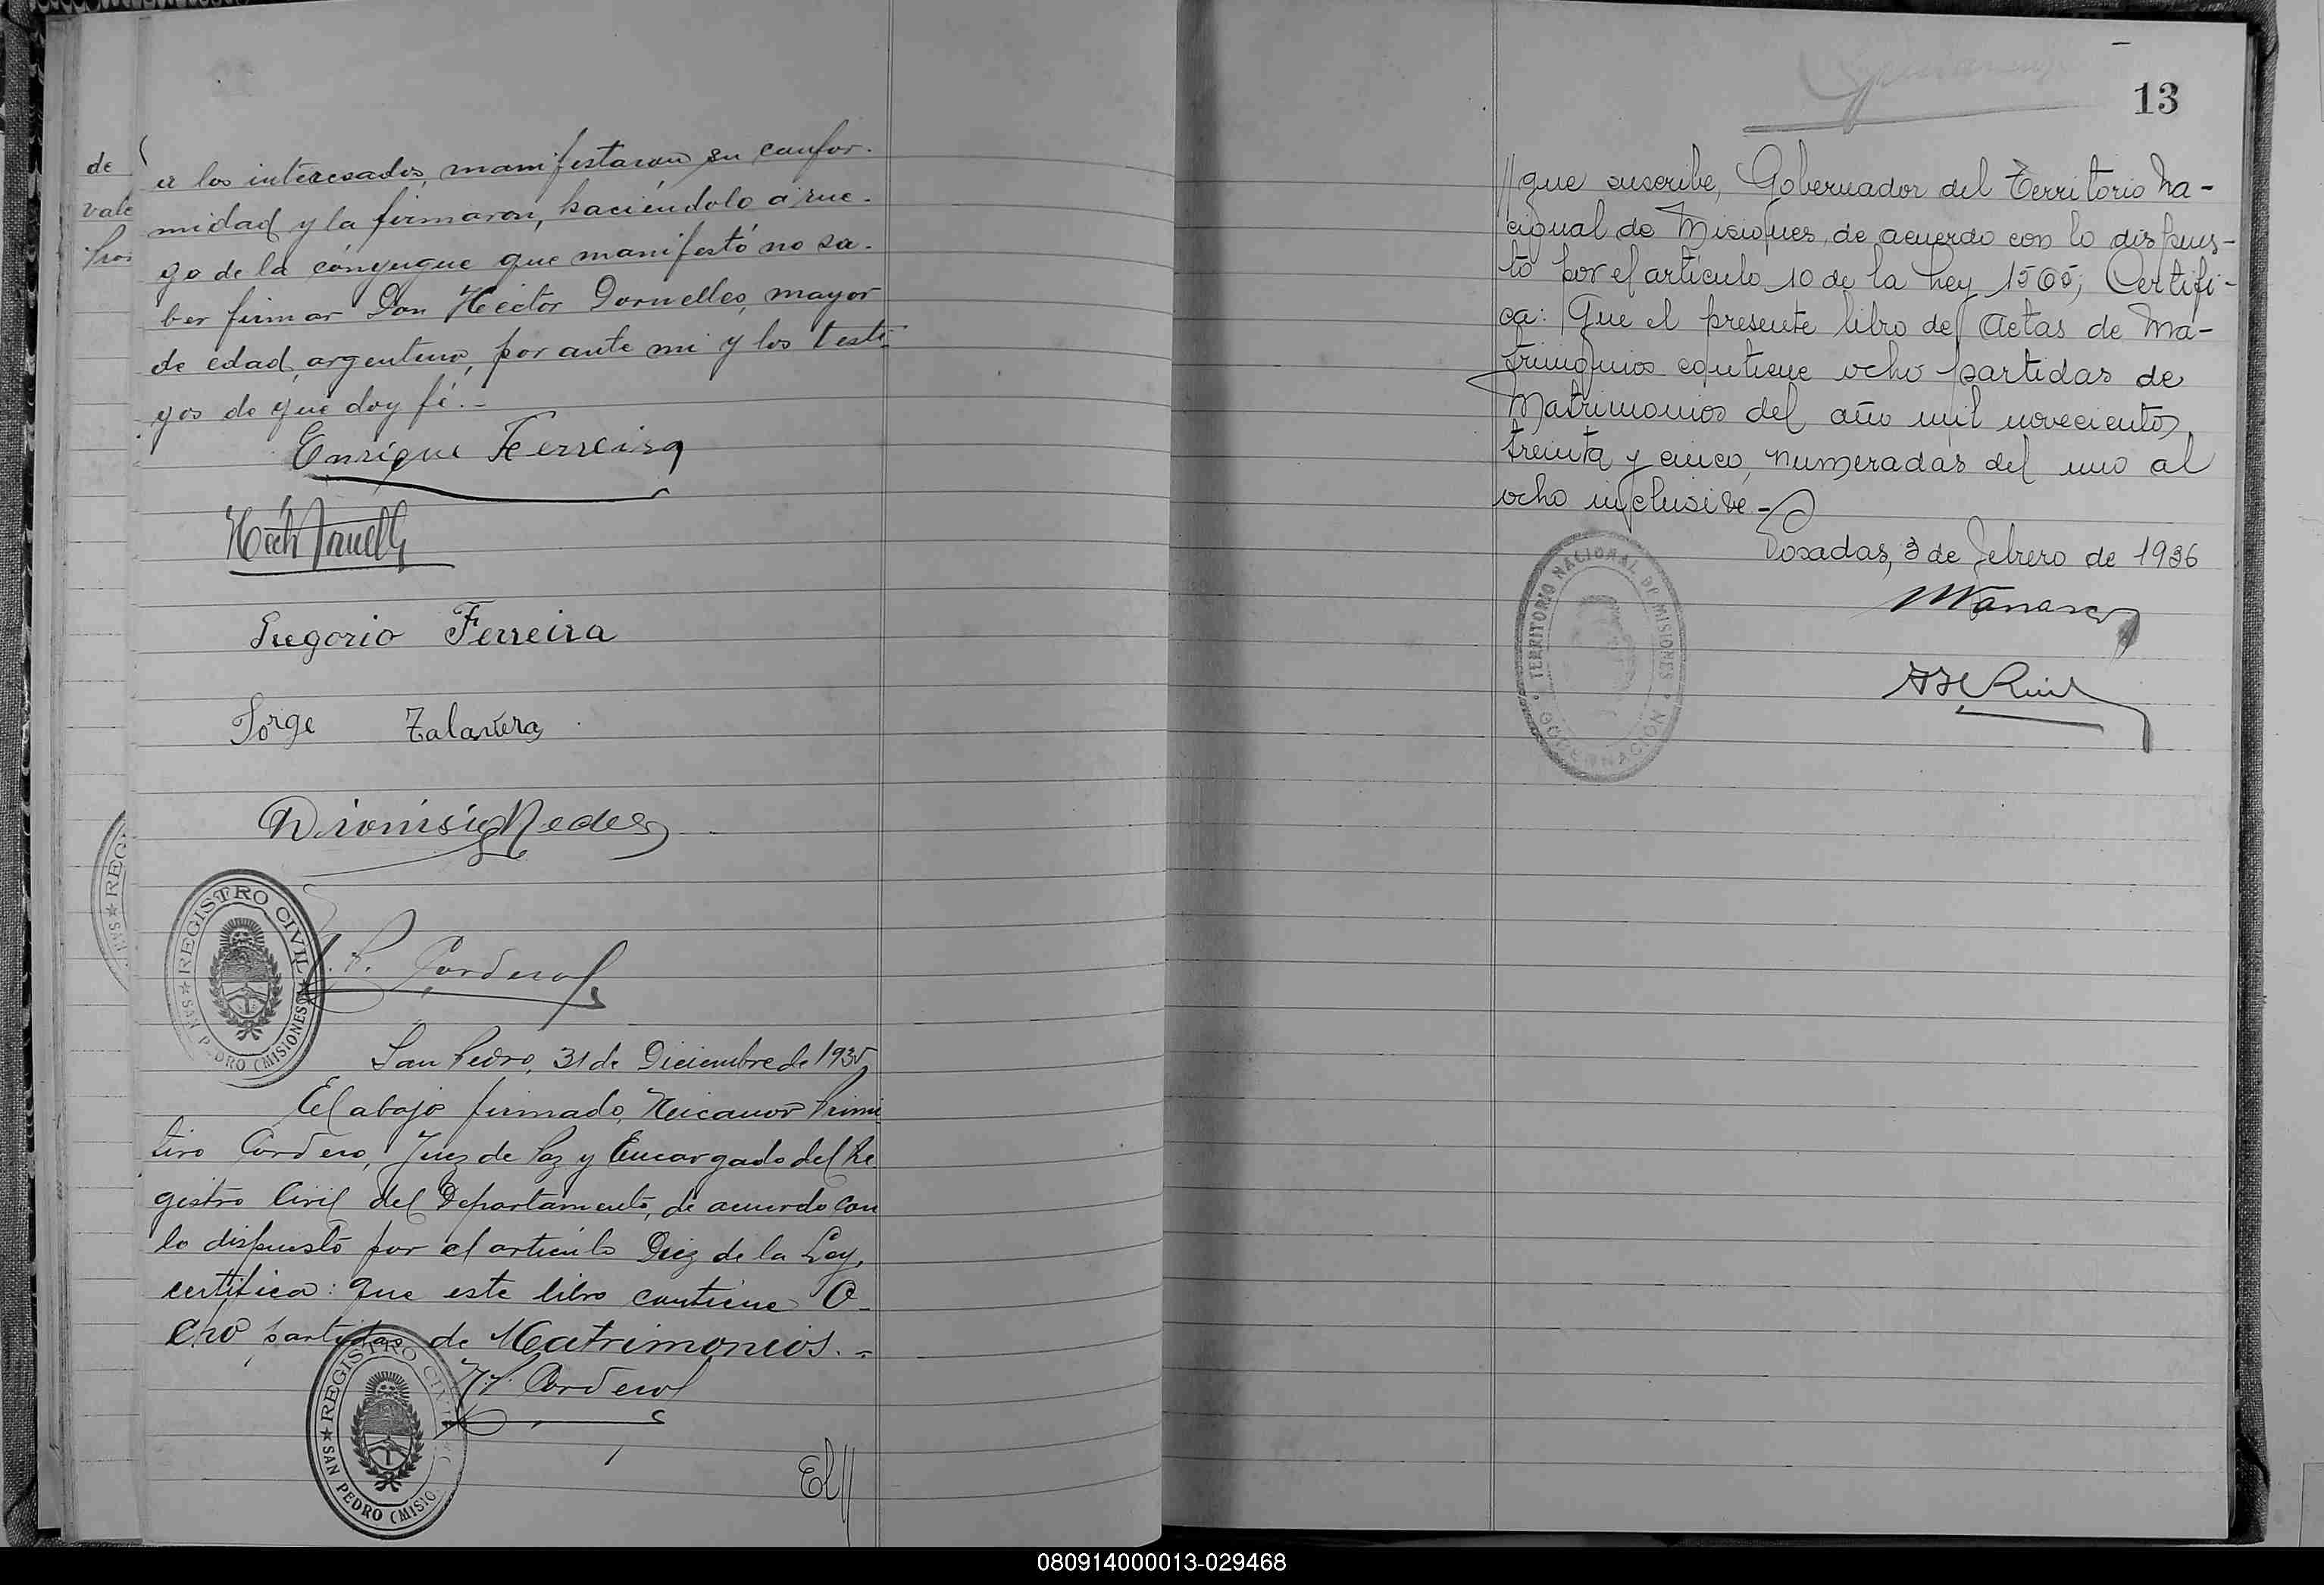 de
vale
a los interesados, manifestaron su confor-
midad y la firmaron, haciéndolo a rue-
go de la cónyugue que manifestó no sa-
ber firmar Don Héctor Dornelles, mayor
de edad, argentino, por ante mi y los testi-
gos de que doy fé.-
Enrique Ferreira
Gregorio Ferreira
Jorge Talavera
Dionisio Nedes
REGISTRO CIVIL
SAN PEDRO (MISIONES)
N. P. Cordero
San Pedro, 31 de Diciembre de 1935
El abajo firmado, Nicanor Primi
tivo Cordero, Juez de Paz y Encargado del Re
gistro Civil del Departamento, de acuerdo con
lo dispuesto por el artículo Diez de la Ley,
certifica: que este libro contiene O-
cho partidas de Matrimonios.-
N. P. Cordero
REGISTRO CIVIL
SAN PEDRO (MISIO
El//
13
//que suscribe, Gobernador del Territorio Na-
cional de Misiones, de acuerdo con lo dispues-
to por el artículo 10 de la Ley 1565; Certifi-
ca: Que el presente libro de Actas de Ma-
trimonios contiene ocho partidas de
Matrimonios del año mil novecientos
treinta y cinco, numeradas del uno al
ocho inclusive.-
Posadas, 3 de febrero de 1936
TERRITORIO NACIONAL DE MISIONES
GOBERNACION
080914000013-029468